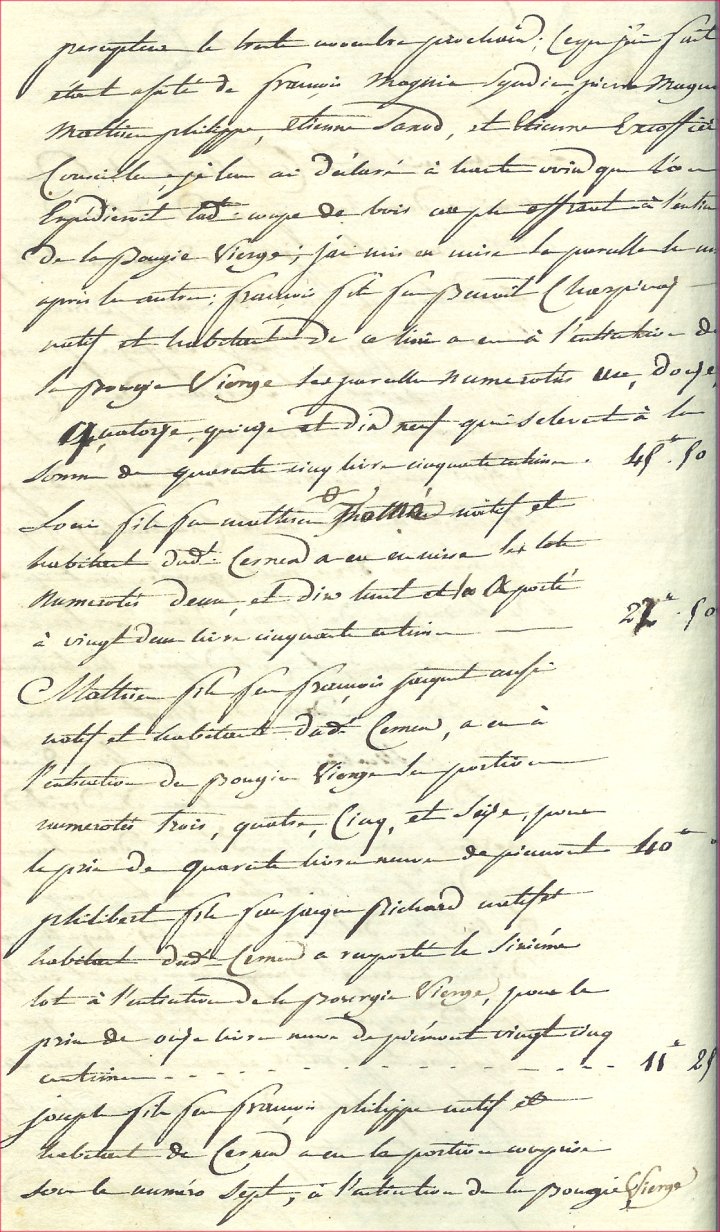 percepteur le trente novembre prochain; Ce que j'ai fait
étant assisté de françois Magnin Syndic, pierre Magnin
Mathieu philippe, etienne Tanod, et Etienne Excoffier
Conseillers, je leur ai déclaré à haute voix que l'on
Expédieroit lad.e coupe de bois au plus offrant à l'extinction
de la Bougie Vierge; j'ai mis en mise les parcelles les unes
après les autres; françois fils feu Benoit
natif et habitant de ce lieu a eu à l'extinction de
la Bougie Vierge les parcelles Numerotés une, douze,
Quatorze, quinze et dix neuf qui s'elevent à la
Somme de quarente cinq livres cinquante centimes. 45ᵗᵗ. 50
Loui fils feu mathieu natif et
habitant dud.t Cernex a eu en mise les lots
Numerotés deux, et dix huit et les a porté
à vingt deux livres cinquante centimes — 22ᵗᵗ. 50
Mathieu fils feu françois jacquet aussi
natif et habitant dud.t Cernex, a eu à
l'extinction de Bougie Vierge les portions
numerotés trois, quatre, Cinq, et Seize, pour
le prix de quarente livres neuves de piemont 40ᵗᵗ
philibert fils feu jacque Richard natif et
habitant dud.t Cernex a raporté le Sixiéme
lot à l'extinction de la Bourgie Vierge, pour le
prix de onze livres neuves de piémont vingt cinq
centimes - - - - - - - - - - - 11ᵗᵗ 25
joseph fils feu françois philippe natif et
habitant de Cernex a eu la portion comprise
sous le numéro Sept, à l'extinction de la Bougie Vierge